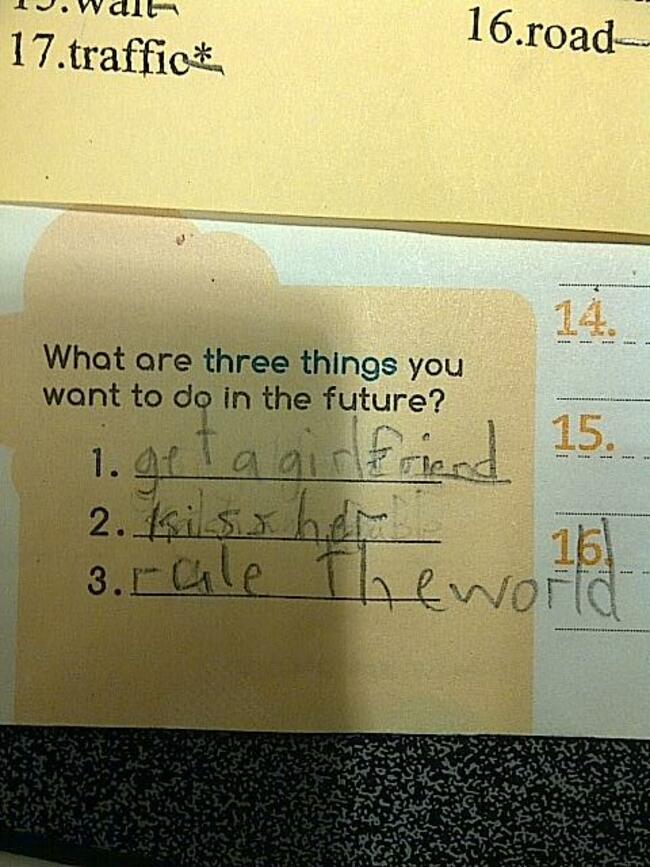 17.traffic*
16.road
What are three things you
want to do in the future?
1. get a girlfriend
2. kiss her
3. rule the world
14.
15.
16.